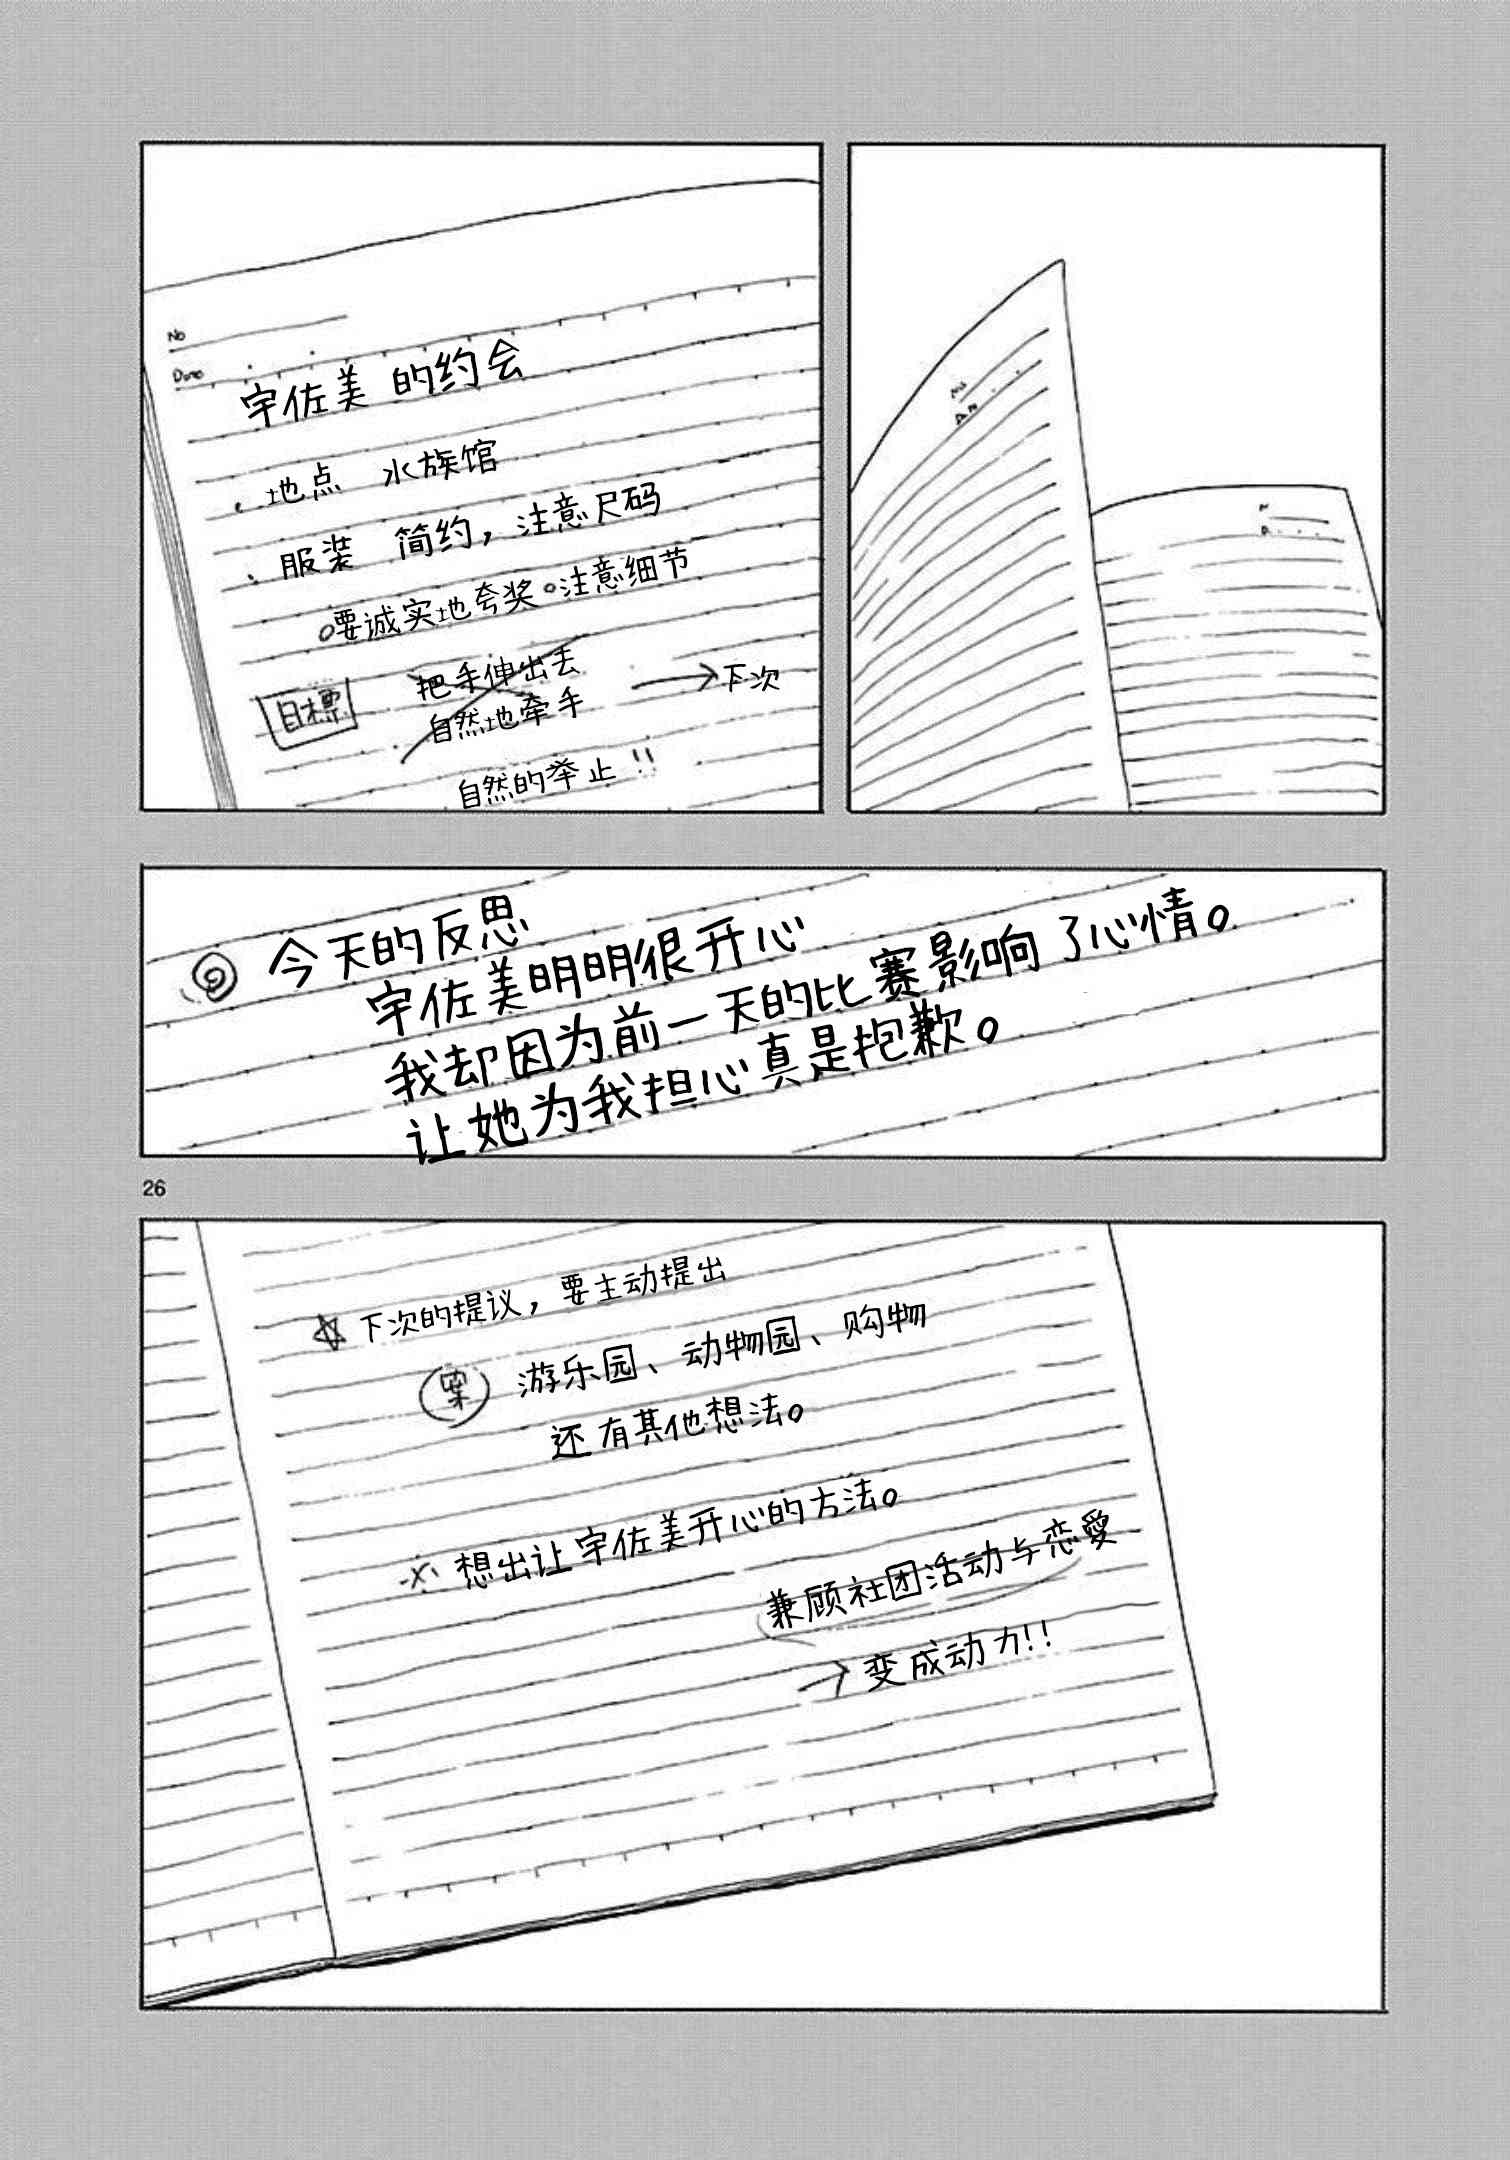 No
Date
宇佐美 的约会
・地点 水族馆
・服装 简约，注意尺码
○要诚实地夸奖○注意细节
目標 把手伸出去 → 下次
自然地牵手
自然的举止!!
◎ 今天的反思
宇佐美明明很开心
我却因为前一天的比赛影响了心情。
让她为我担心真是抱歉。
26
☆下次的提议，要主动提出
案 游乐园、动物园、购物
还有其他想法。
※想出让宇佐美开心的方法。
兼顾社团活动与恋愛
→变成动力!!